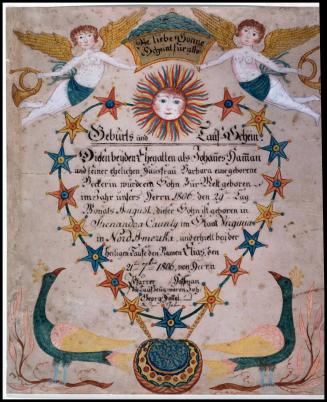 Die liebe Sonne
Scheint für alle
Geburts und Tauf Schein
Diesen beyden Ehegatten als Johannes Hamman
und seiner ehelichen Hausfrau Barbara eine geborene
wurde ein Sohn Zur Welt geboren
im Jahr unsers Herrn 1806. den 29. Tag
Monats August, dieser Sohn ist geboren in
Shenandoa County im Staat Virginia
in Nord Amerika, und erhielt bey der
heiligen Taufe den Namen Elias, den
1806. von Herrn
Pfarrer Hoffman
Taufzeug waren
Georg